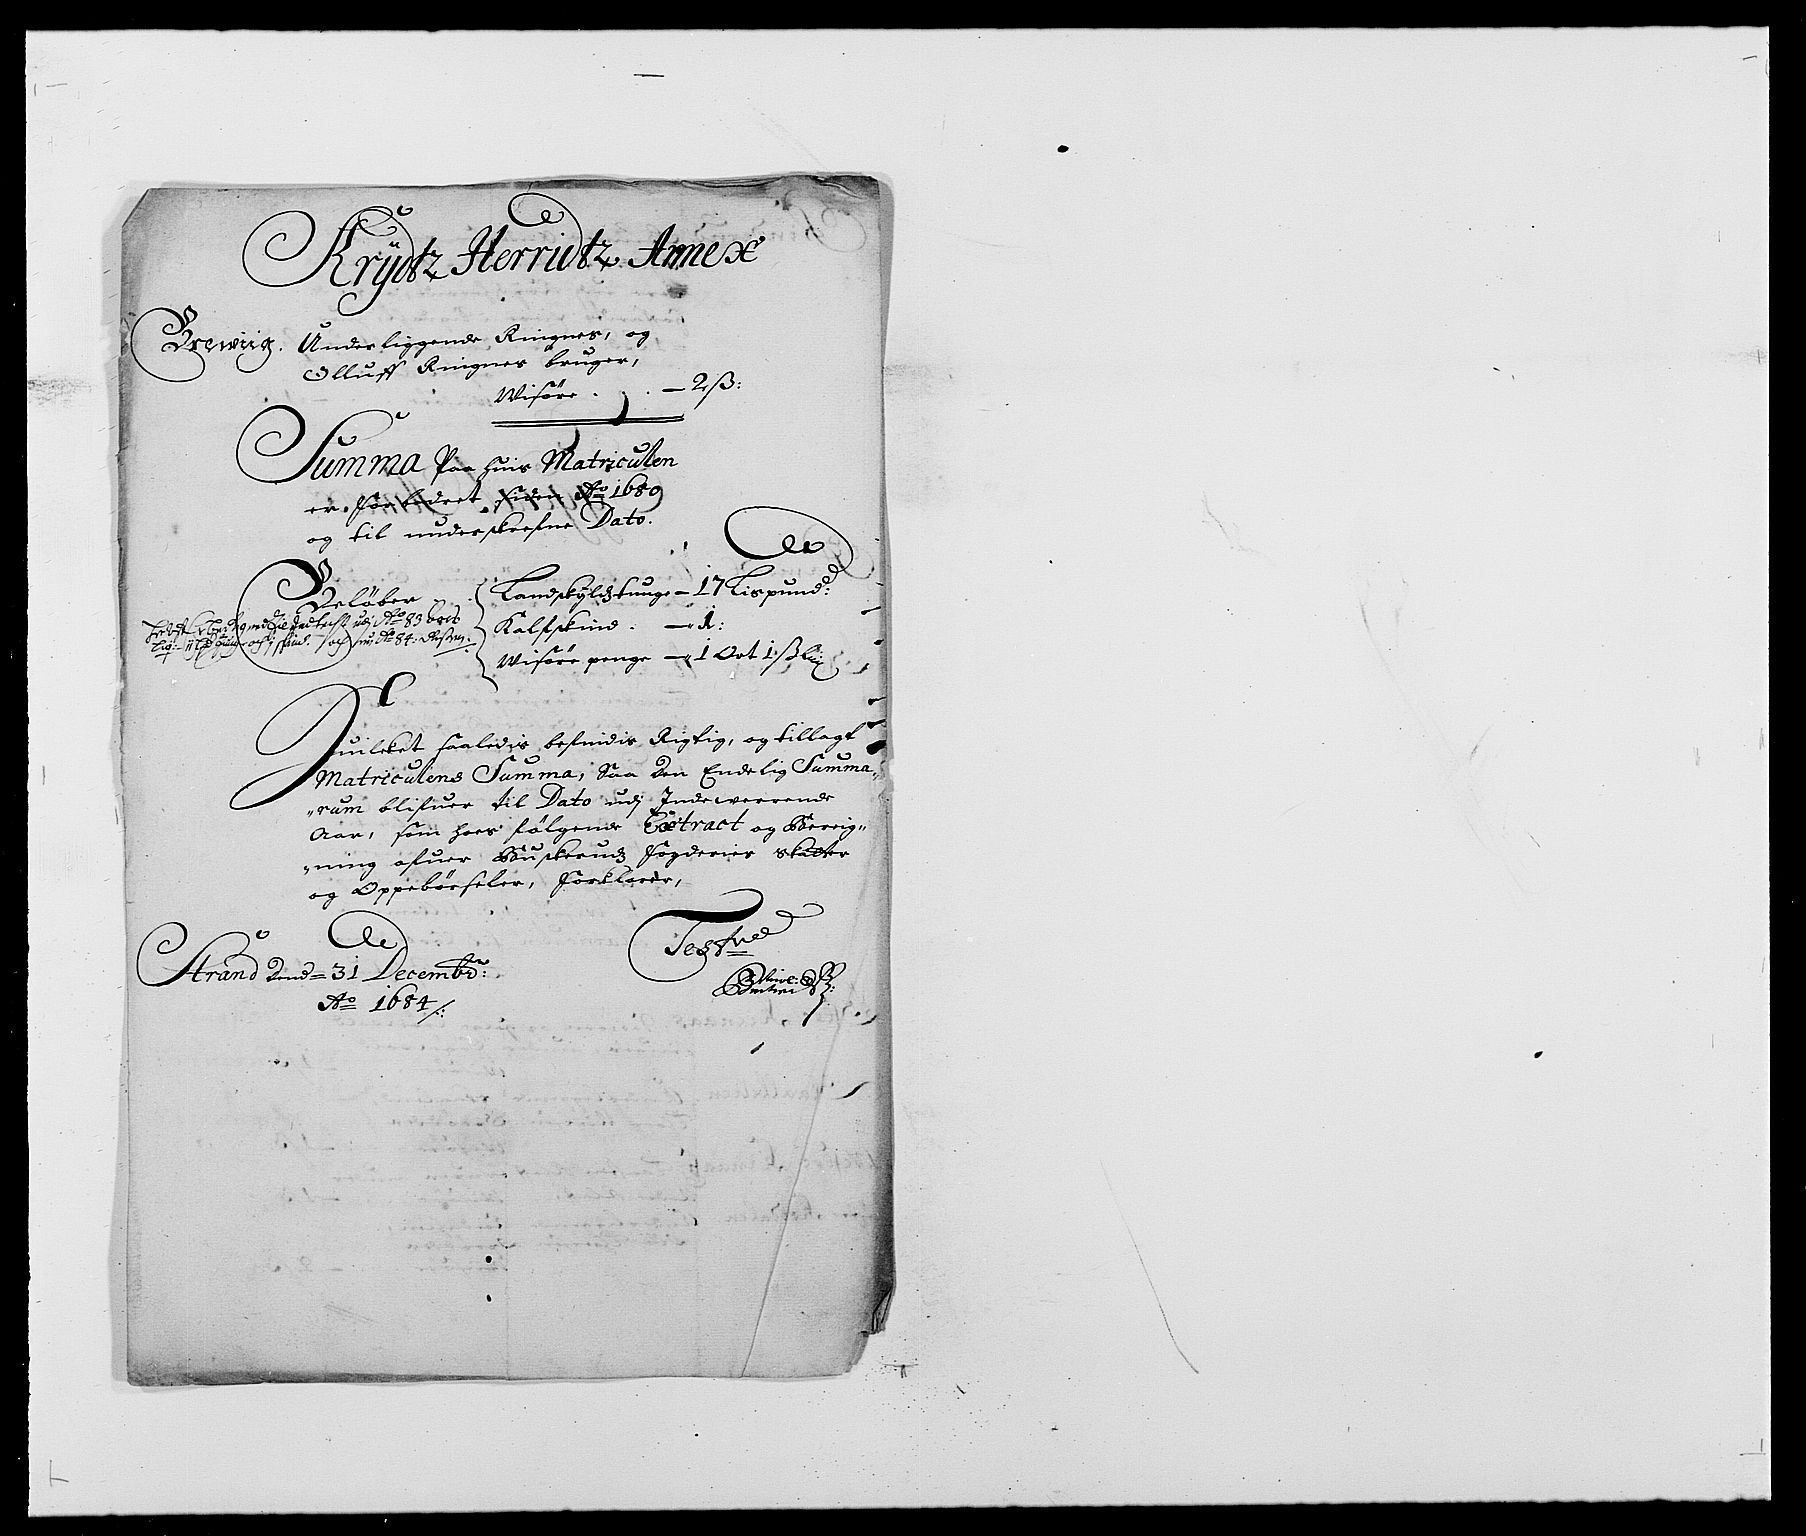 Krydtz Herridtz Annex
Brewiig. Underliggende Ringnes, og
Olluff Ringnes bruger,
Wisøre . . — 2 ß:
Summa Paa huis Matriculen
er forbedret siden Ao 1680
og til underskrefne Dato.
Beløber
Landskyldz tunge — 17 Lispund:
Kalfskind. — 1:
Wisøre penge — 1 Ort 1 ß
udj Ao 83
Ao 84:
Huilcket saaledis befindis Rigtig, og tillagt
Matriculens Summa, Saa den Endelig Summa„
„rum blifuer til Dato udj Indewerrende
Aar, som hoes følgende Extract og Bereig„
„ning ofuer Buskerudz Fogderies Skatter
og Oppebørseler, forklarer,
Strand Dend = 31 Decembr:
Ao 1684 /:
Test